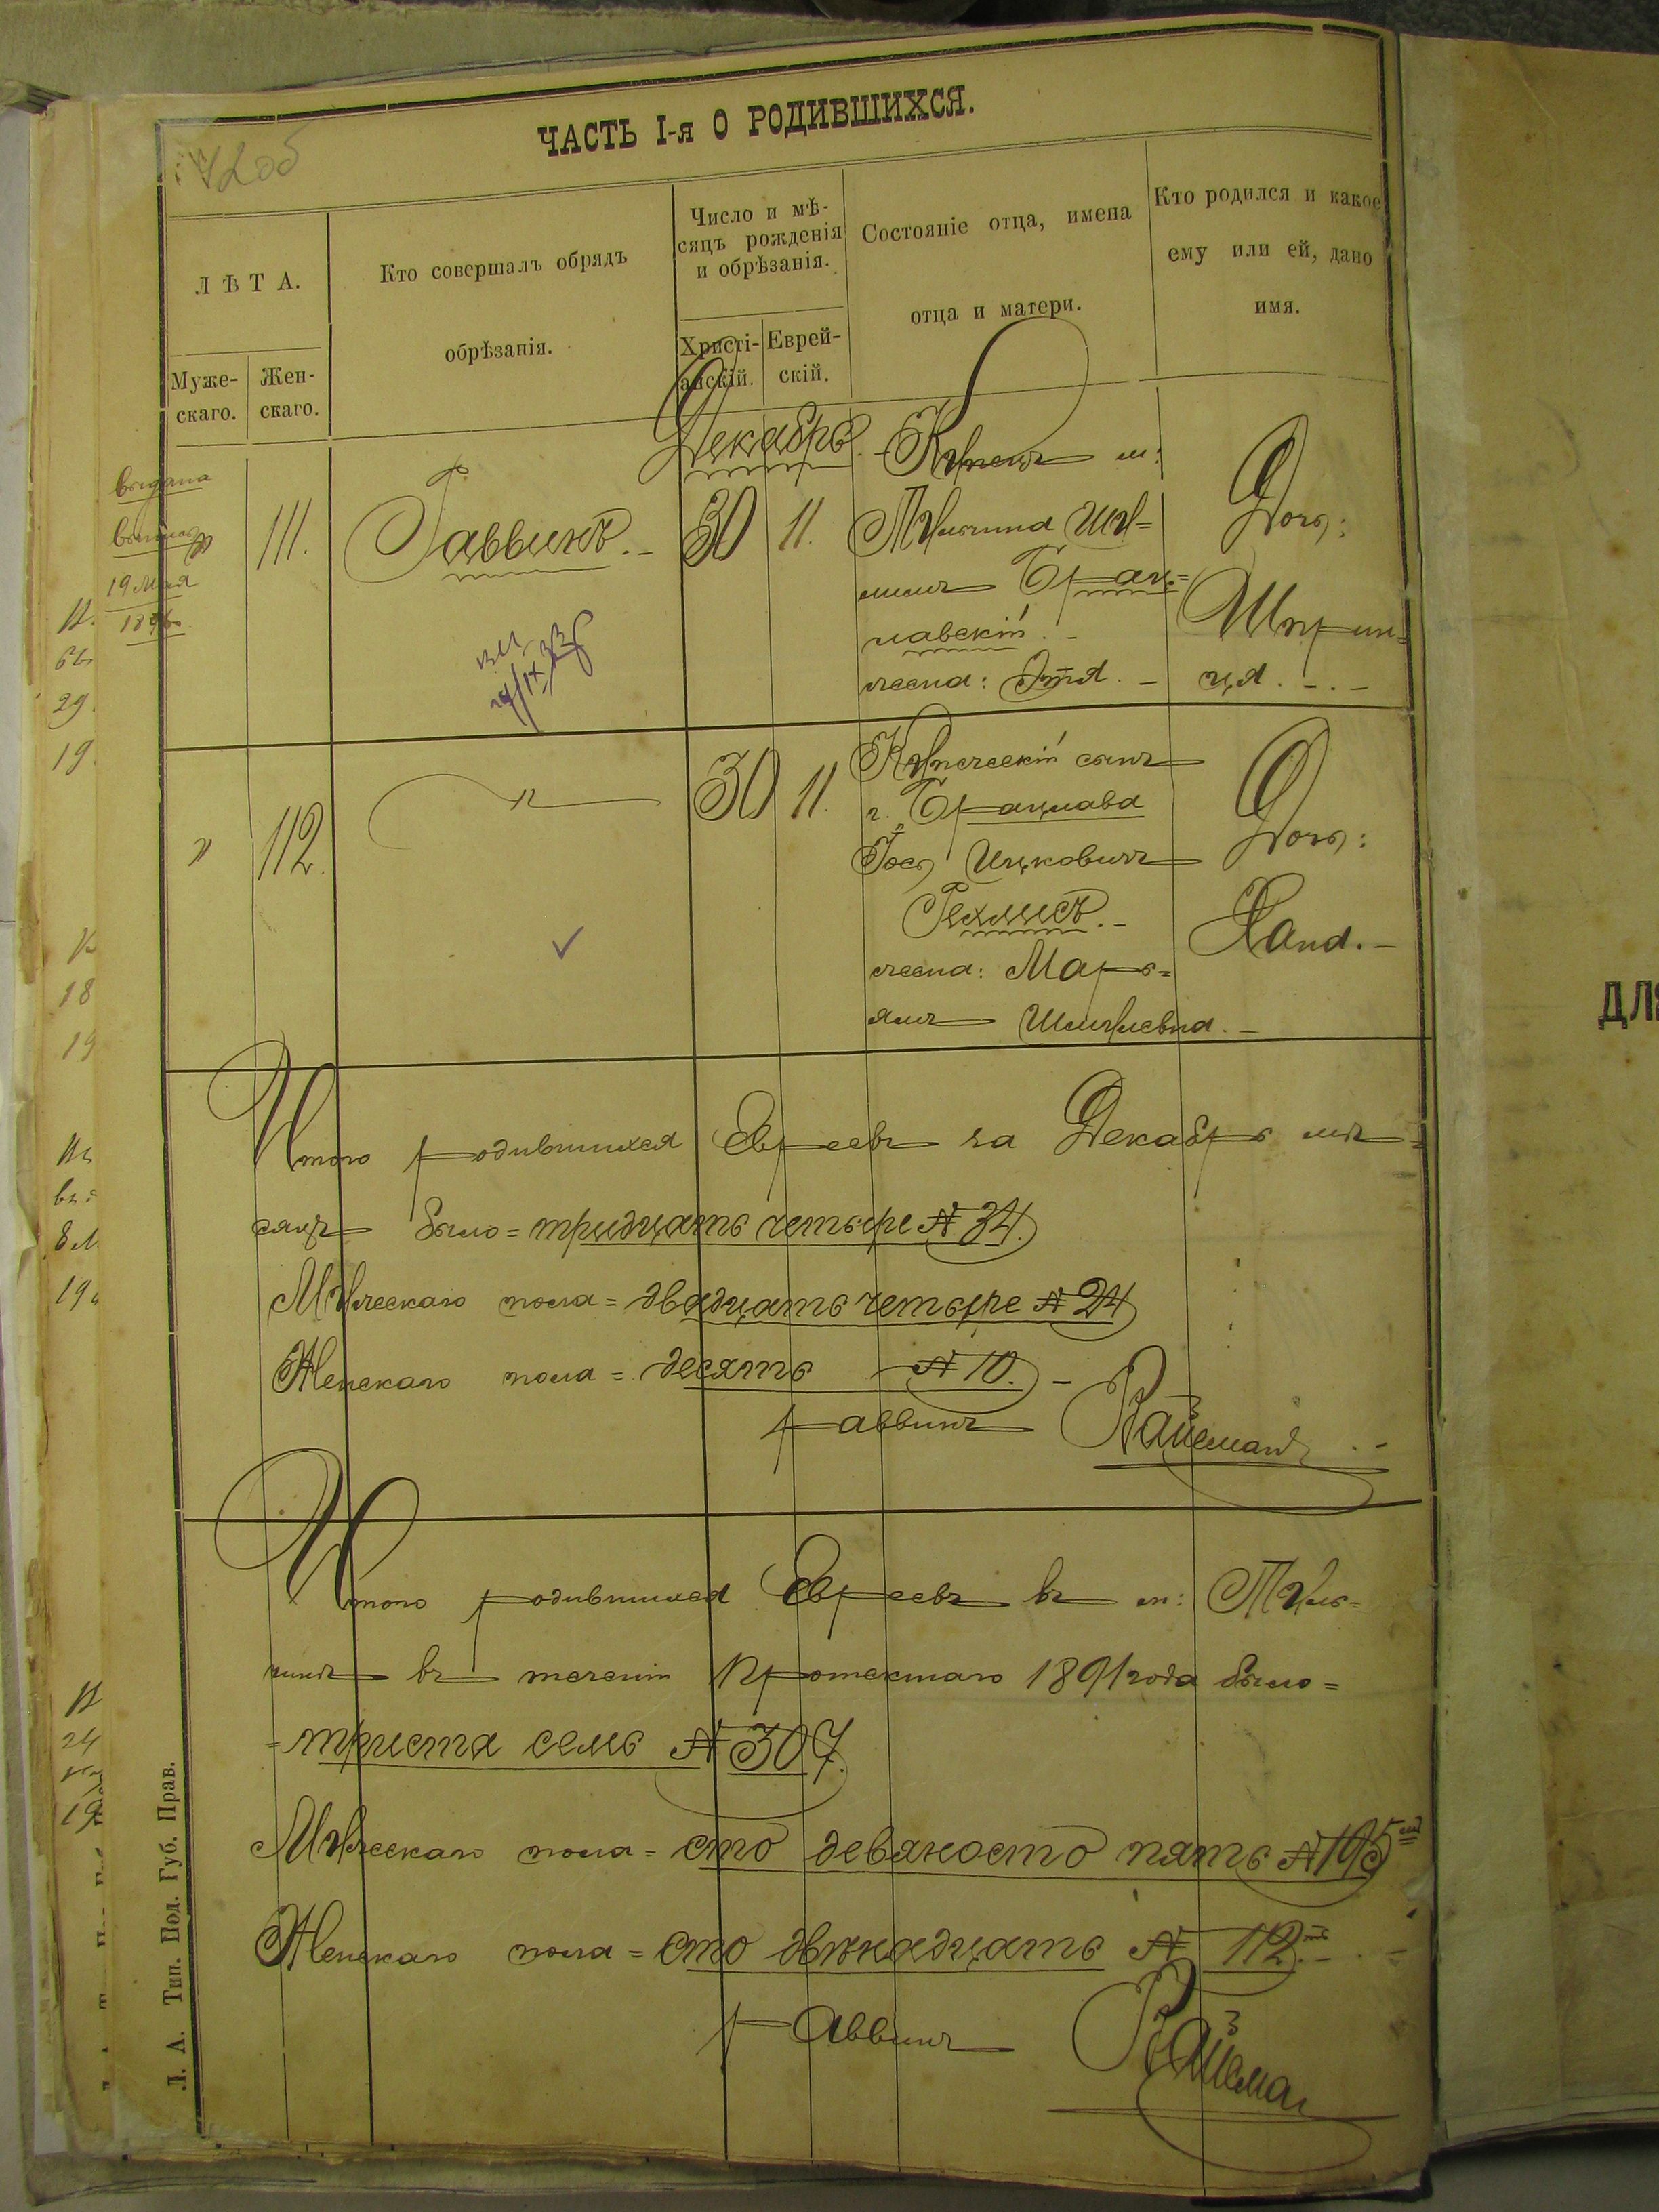 ЧАСТЬ I-я О РОДИВШИХСЯ.
Л Ѣ Т А.
Муже-
скаго.
Жен-
скаго.
Кто совершалъ обрядъ
обрѣзанія.
Число и мѣ-
сяцъ рожденія
и обрѣзанія.
Христі-
анскій.
Еврей-
скій.
Состояніе отца, имена
отца и матери.
Кто родился и какое
ему или ей, дано
имя.
Декабрь.
выдана
19 Мая
111.
Раввинъ.
30
11.
Купецъ м:
Тульчина Шу-
лимъ Брац=
лавскій. -
жена: Этя. -
Дочь:
Шприн=
ця. - . -
"
112.
"
30
11.
Купеческій сынъ
г. Брацлава
Іось Ицковичъ
жена: Марь=
ямъ Шмулевна. -
Дочь:
Хана. -
Итого родившихся Евреевъ за Декабрь мѣ=
сяцъ было = тридцать четыре № 34.
Мужескаго пола = двадцать четыре № 24
Женскаго пола = десять № 10. -
раввинъ Вайсман
Итого родившихся Евреевъ въ м: Туль=
чинѣ въ теченіи протекшаго 1891 года было =
= триста семь № 307.
Мужескаго пола = сто девяносто пять № 195
Женскаго пола = сто двѣнадцать № 112. -
раввинъ Вайсман
Л. А. Тип. Под. Губ. Прав.